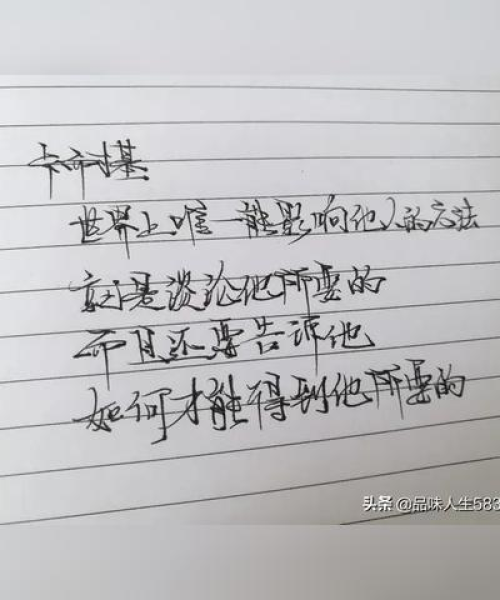 卡耐基
世界上唯一能影响他人的方法
就是谈论他所要的
而且还要告诉他
如何才能得到他所要的
头条 @品味人生583